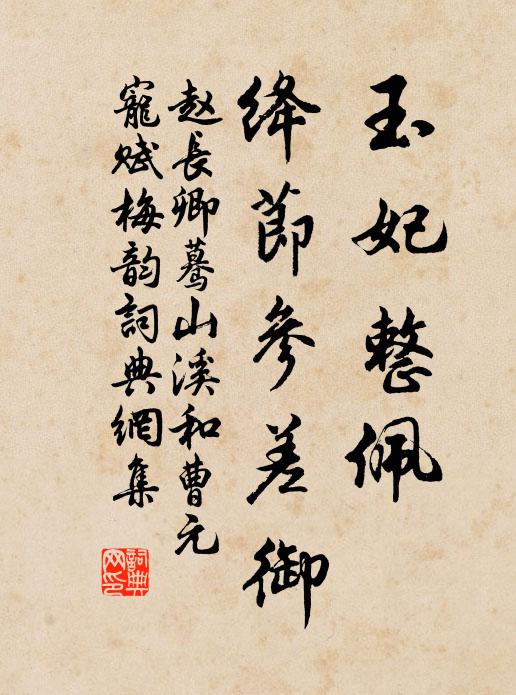 玉妃整佩
绛節參差御
赵長卿蓦山溪和曹元
寵赋梅韵詞典網集
詞典网印